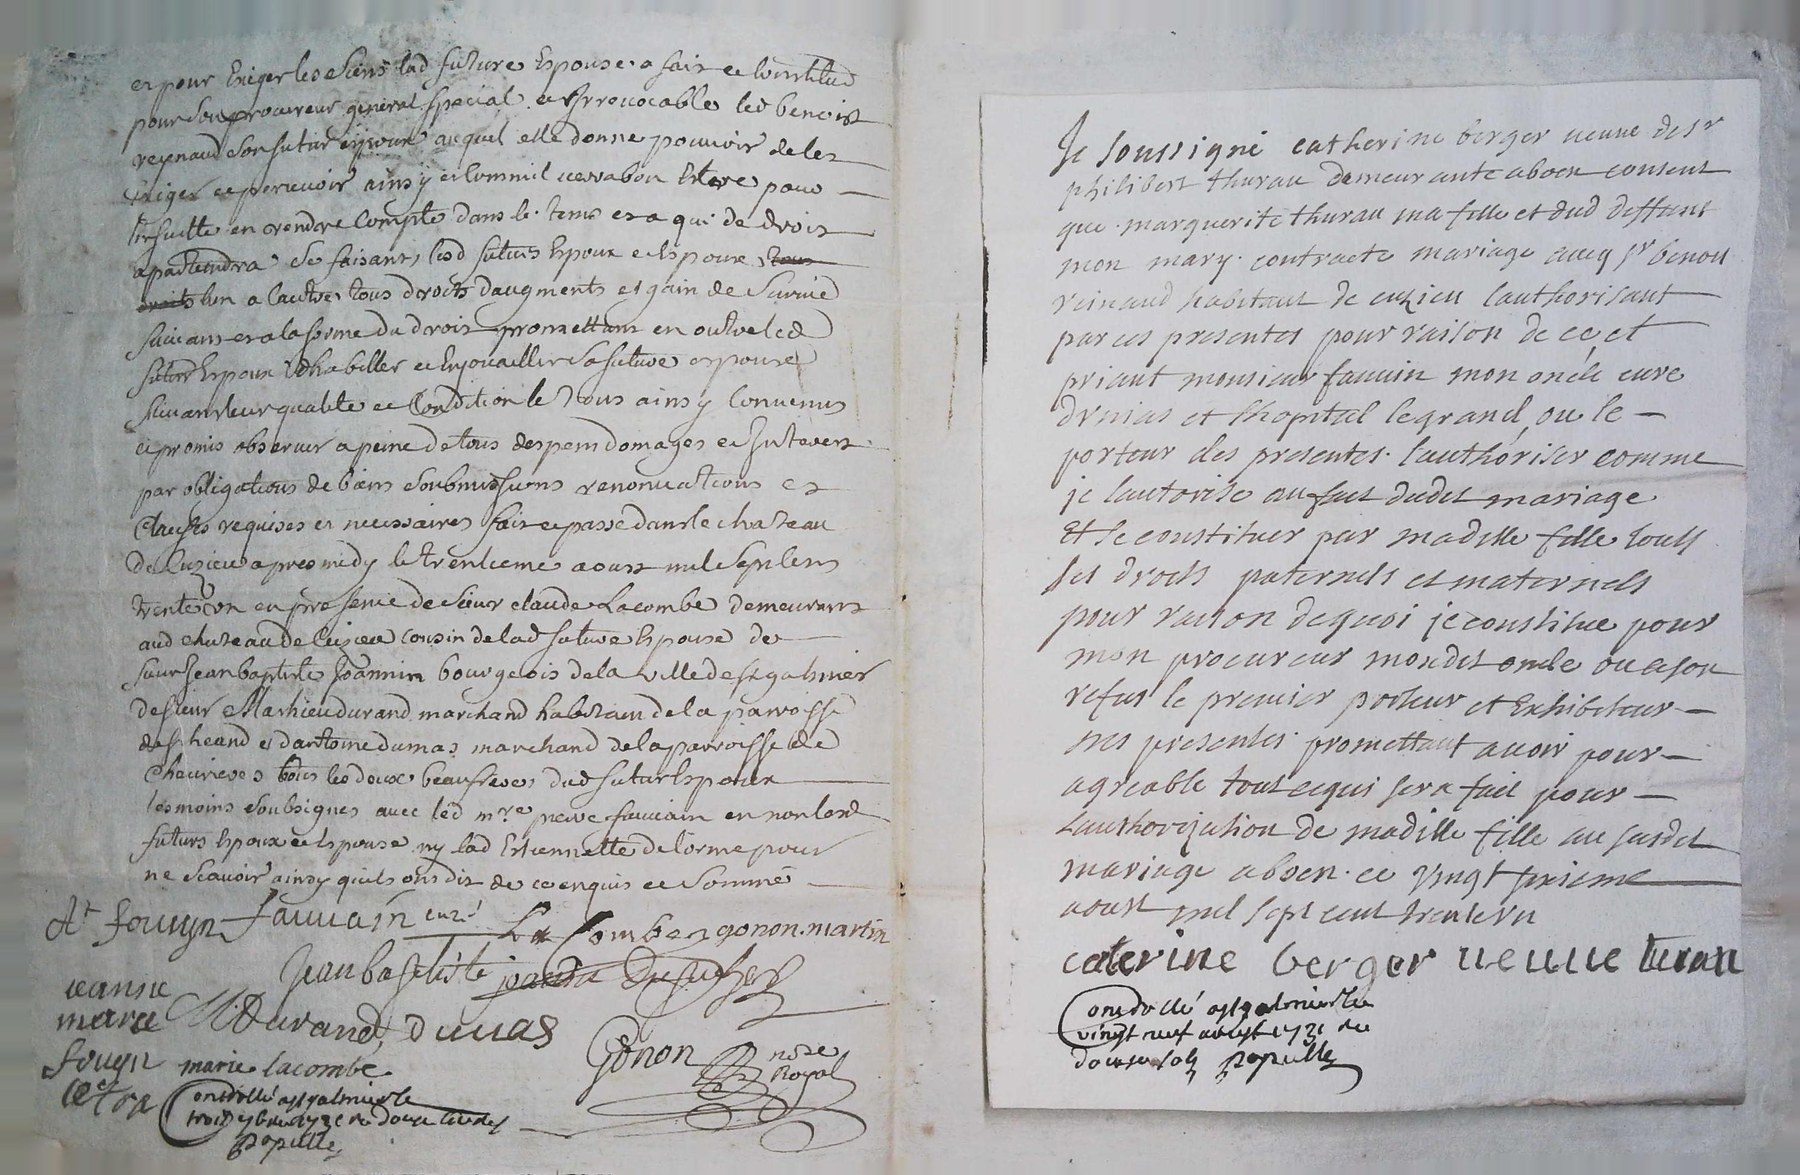 et pour Exiger les Siens lad future Espouse a fait et Constitué
pour Son procureur general special et Irrevocable led benoist
reynaud Son futur espoux auquel elle donne pouvoir de les
Exiger et percevoir ainsy et Comme il verra bon Estre pour
Ensuitte en rendre Compte dans le tems et a qui de droit
apartiendra Se faisant lesd futurs Espoux et Espouse tous
droits lun a lautre tous droits daugments et gain de Survie
Suivant et a la forme du droit promettant en outre led
futur Espoux dhabiller et Enjouailler Sa future espouse
Suivant leur qualité et Condition le tous ainsy Convenus
et promis observer a peine de tous despens domages et Interest
par obligations de biens Soubmissions renonciations et
Clauses requises et necessaires fait et passé dans le chateau
De Cuzieu apres midy le trentieme aoust mil Sept Cens
trente un en presence de Sieur claude Lacombe demeurant
aud chateau de Cuzieu cousin de lad future Espouse de
Sieur Jean baptiste Joannin bourgeois de la ville de st galmier
de Sieur Mathieu durand marchand habitant de la parroisse
et dantoine dumas marchand de la parroisse de
Chevrieres tous les deux beaufreres dud futur Espoux
tesmoins Soubsignes avec led mre fauvain et non lesd
futurs Espoux et Espouse ny lad Estiennette delorme pour
ne Scavoir ainsy quils ont dit de ce enquis et Sommé
At fougn fauvain curé La Combe gonon martin
Jean baptiste
jeanne
marie MDurand, dumas
fougn marie lacombe Gonon notre
Royal
Controllé a st galmier le
trois 7bre 1731 Re douze livres
populle
Je soussigné catherine berger veuve de sr
philibert thurau demeurante a boen consent
que marguerite thurau ma fille et dud deffunt
mon mary contracte mariage avec sr benoit
reinaud habitant de cuzieu lauthorisant
par ces presentes pour raison de ce et
priant monsieur fauvin mon oncle curé
dunias et lhopital le grand, ou le
porteur des presentes lauthoriser comme
je lautorise au fait dudit mariage
Et se constituer par madille fille touts
ses droits paternels et maternels
pour raison de quoi je constitue pour
mon procureur mondit oncle ou a son
refus le premier porteur et Exhibiteur
des presentes promettant avoir pour
agreable tout ce qui sera fait pour
Lauthorization de madille fille au susdit
mariage a boen ce vingt sixieme
aoust mil sept cent trente un
caterine berger veuve turau
Controllé a st galmier le
vingt neuf aoust 1731 Re
douze sols populle